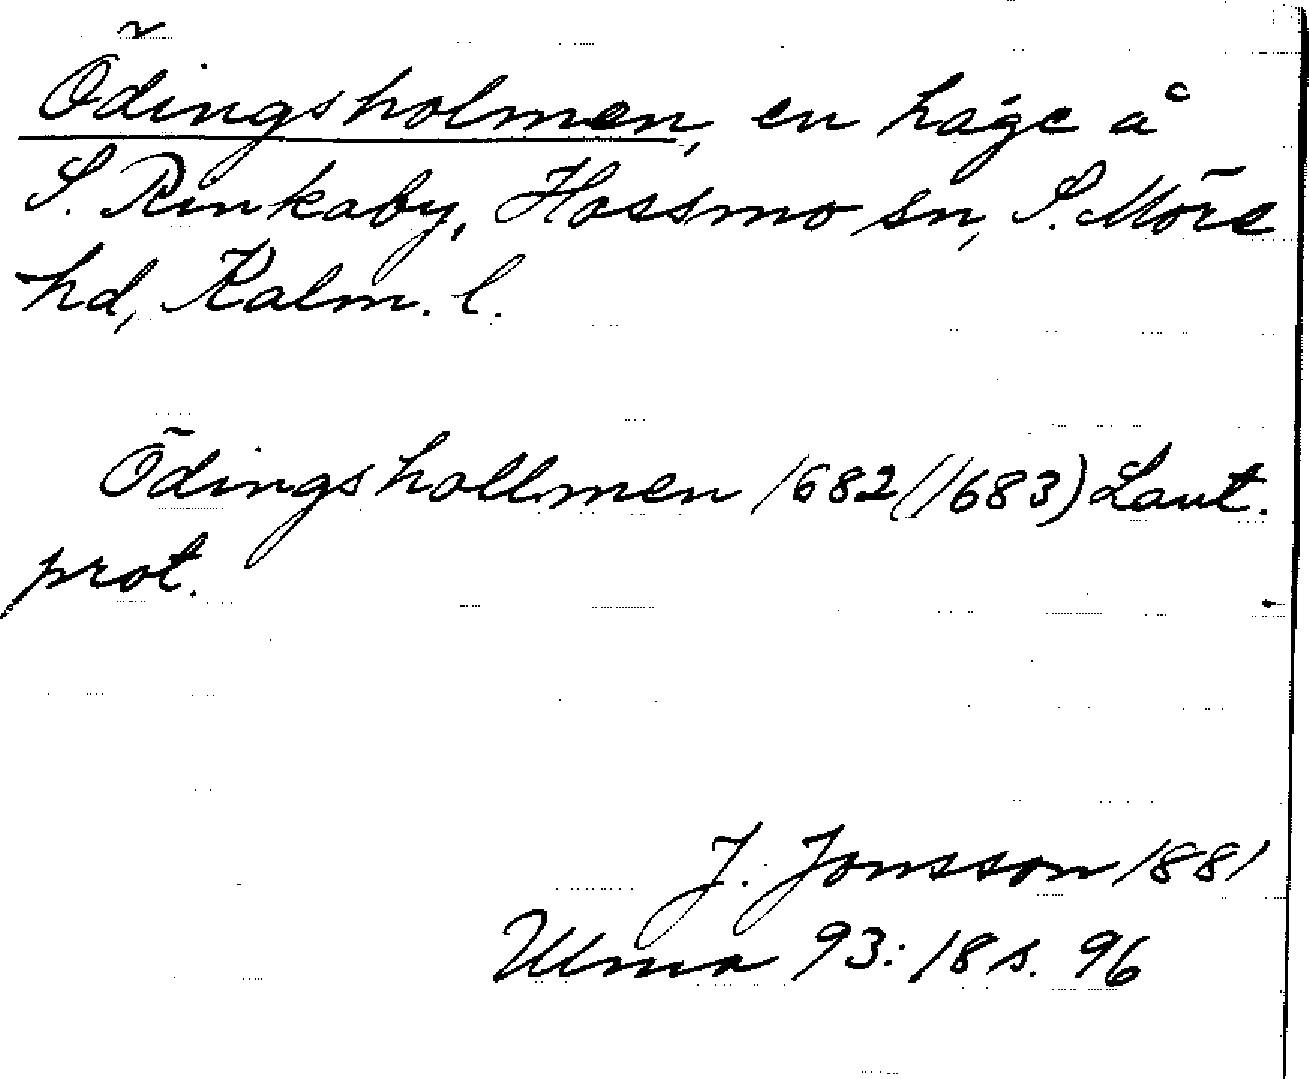 Ödingsholmen, en häge å
S. Rinkaby, Hossmo sn, S. Möre
hd, Kalm. l.
Ödingshollmen 1682 (1683) Lant.
prot.
J. Jonsson 1881
Ulma 93:18 s. 96